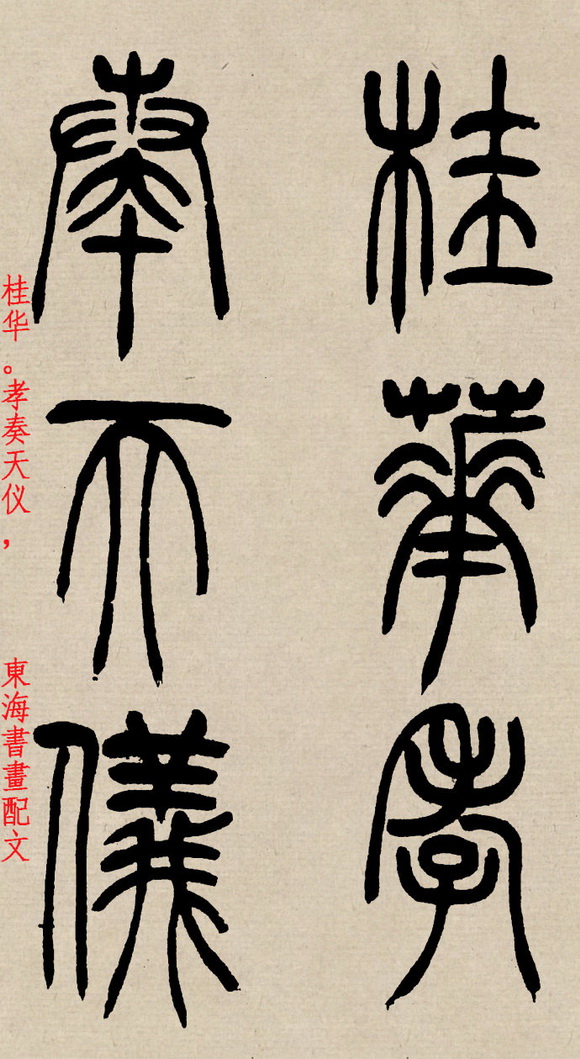 桂華孝
奏天儀
桂华。孝奏天仪，
東海書畫配文